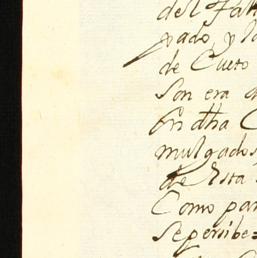 del
pado, y l
de Cueto
son era
En dha C
mulgados
de esta
Como par
se persibe=